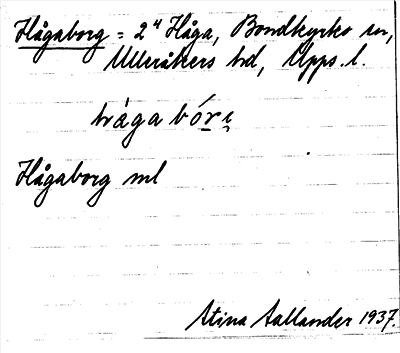 Hågaborg = 2⁴ Håga, Bondkyrko sn,
Ulleråkers hd, Upps. l.
hàga bórị
Hågaborg ml
Stina Sallander 1937.